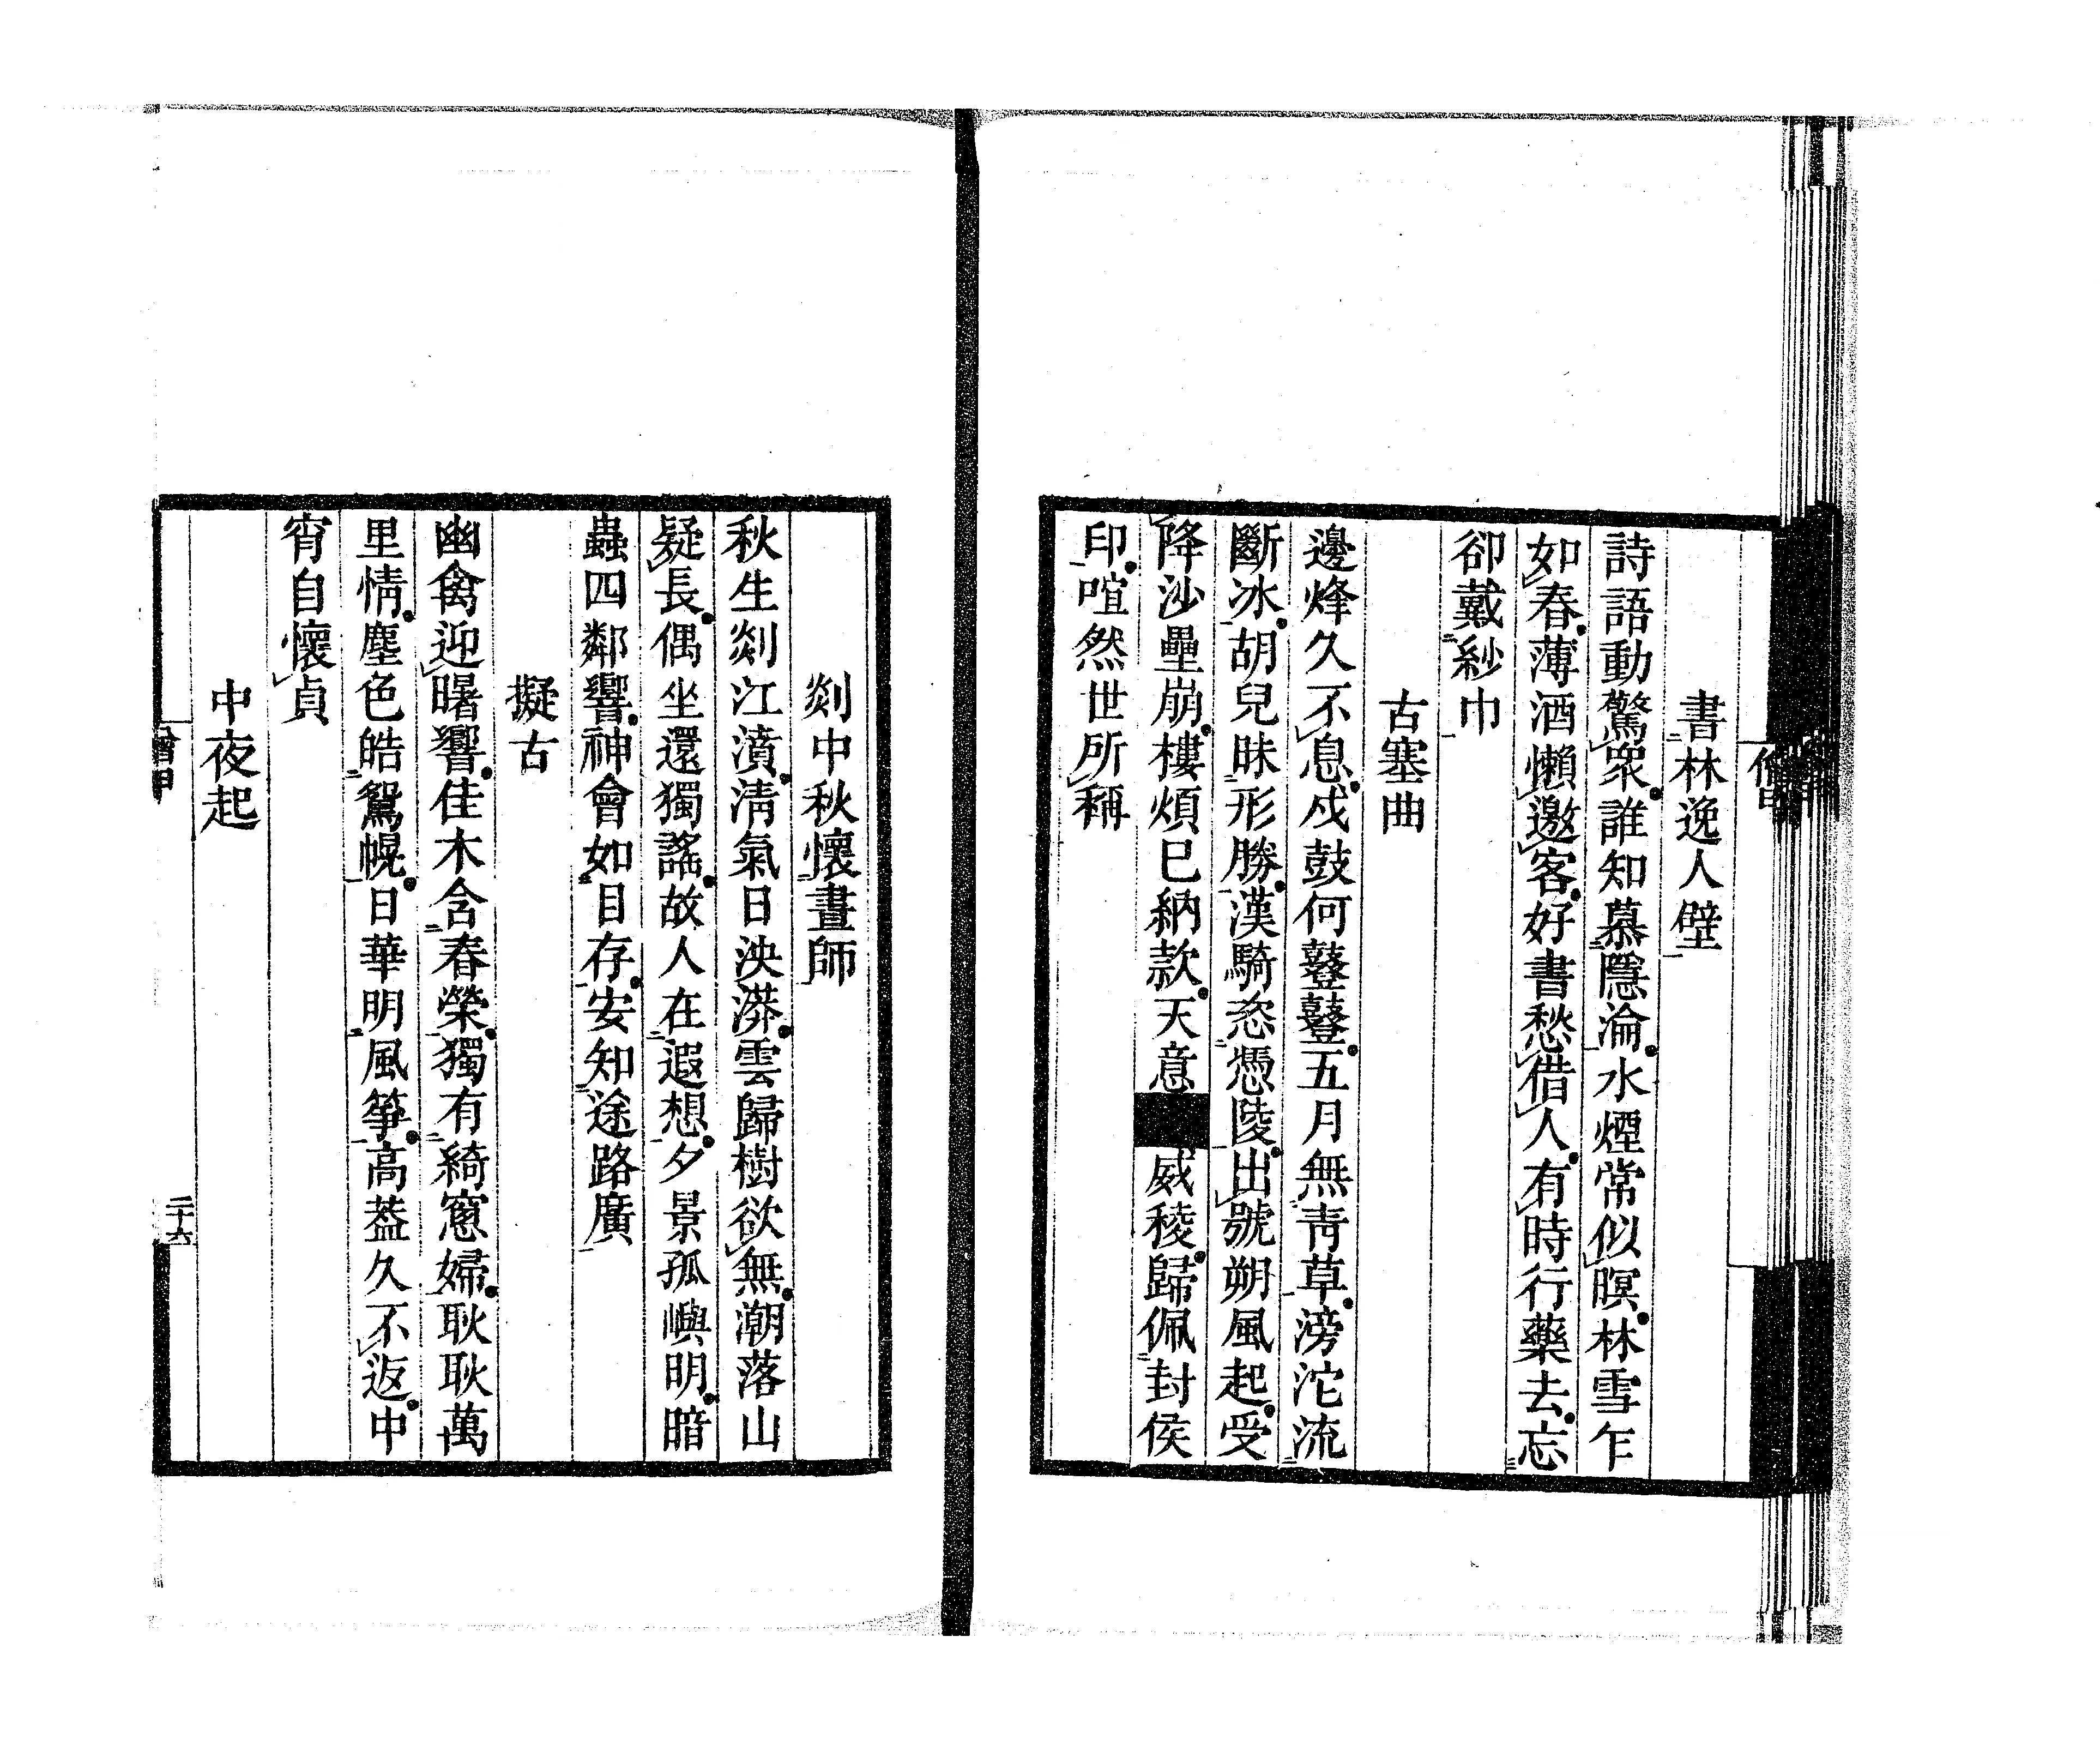 書林逸人壁
詩語動驚衆誰知慕隱淪水煙常似暝林雪乍
如春薄酒懶邀客好書愁借人有時行藥去忘
卻戴紗巾
古塞曲
邊烽久不息戍鼓何鼞鼞五月無青草滂沱流
斷冰胡兒昧形勝漢騎恣憑陵出號朔風起受
降沙壘崩樓煩已納款天意威稜歸佩封侯
印喧然世所稱
剡中秋懷畫師
秋生剡江濆清氣日泱漭雲歸樹欲無潮落山
疑長偶坐還獨謠故人在遐想夕景孤嶼明暗
蟲四鄰響神會如目存安知途路廣
擬古
幽禽迎曙響佳木含春榮獨有綺窻婦耿耿萬
里情塵色皓鴛幌日華明風箏高葢久不返中
宵自懷貞
中夜起
二十六